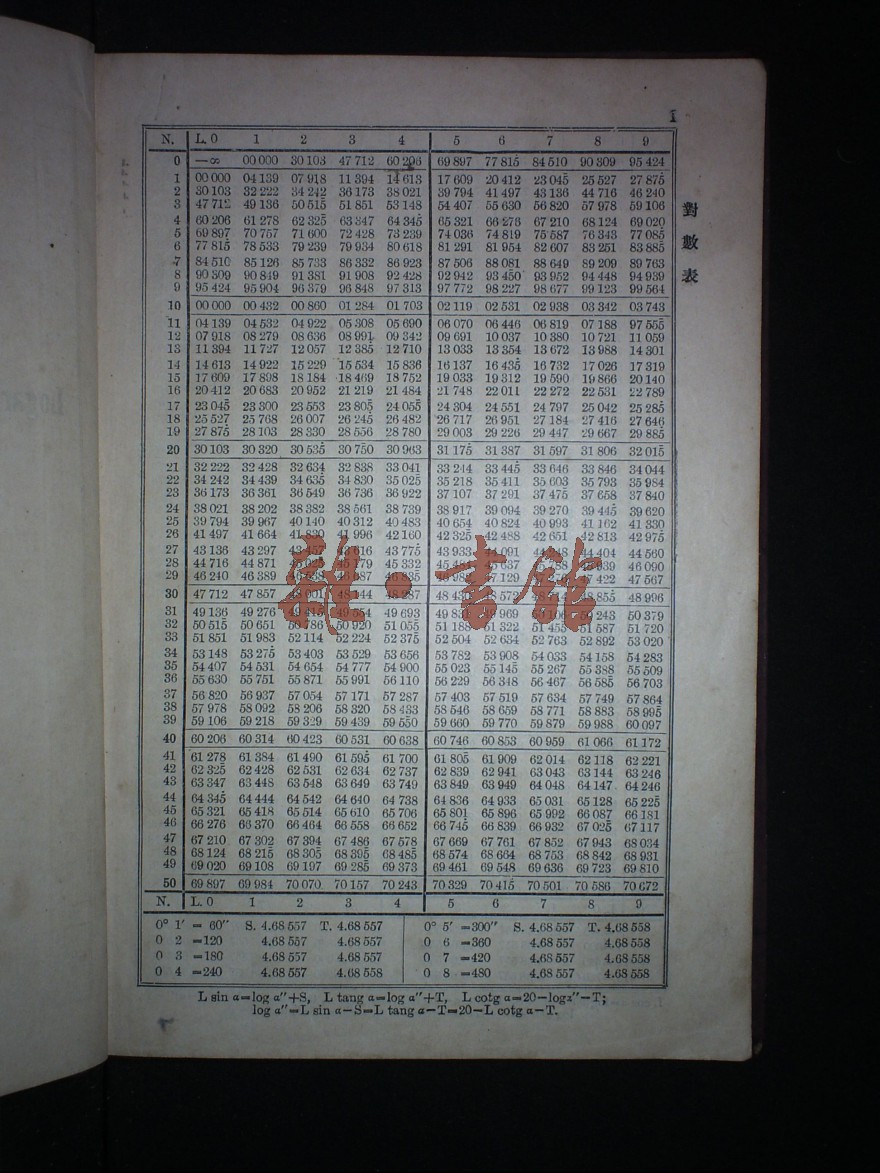 1
N. L. 0 1 2 3 4 5 6 7 8 9
0 —∞ 00 000 30 103 47 712 60 206 69 897 77 815 84 510 90 309 95 424
1 00 000 04 139 07 918 11 394 14 613 17 609 20 412 23 045 25 527 27 875
2 30 103 32 222 34 242 36 173 38 021 39 794 41 497 43 136 44 716 46 240
3 47 712 49 136 50 515 51 851 53 148 54 407 55 630 56 820 57 978 59 106
4 60 206 61 278 62 325 63 347 64 345 65 321 66 276 67 210 68 124 69 020
5 69 897 70 757 71 600 72 428 73 239 74 036 74 819 75 587 76 343 77 085
6 77 815 78 533 79 239 79 934 80 618 81 291 81 954 82 607 83 251 83 885
7 84 510 85 126 85 733 86 332 86 923 87 506 88 081 88 649 89 209 89 763
8 90 309 90 849 91 381 91 908 92 428 92 942 93 450 93 952 94 448 94 939
9 95 424 95 904 96 379 96 848 97 313 97 772 98 227 98 677 99 123 99 564
10 00 000 00 432 00 860 01 284 01 703 02 119 02 531 02 938 03 342 03 743
11 04 139 04 532 04 922 05 308 05 690 06 070 06 446 06 819 07 188 97 555
12 07 918 08 279 08 636 08 991 09 342 09 691 10 037 10 380 10 721 11 059
13 11 394 11 727 12 057 12 385 12 710 13 033 13 354 13 672 13 988 14 301
14 14 613 14 922 15 229 15 534 15 836 16 137 16 435 16 732 17 026 17 319
15 17 609 17 898 18 184 18 469 18 752 19 033 19 312 19 590 19 866 20 140
16 20 412 20 683 20 952 21 219 21 484 21 748 22 011 22 272 22 531 22 789
17 23 045 23 300 23 553 23 805 24 055 24 304 24 551 24 797 25 042 25 285
18 25 527 25 768 26 007 26 245 26 482 26 717 26 951 27 184 27 416 27 646
19 27 875 28 103 28 330 28 556 28 780 29 003 29 226 29 447 29 667 29 885
20 30 103 30 320 30 535 30 750 30 963 31 175 31 387 31 597 31 806 32 015
21 32 222 32 428 32 634 32 838 33 041 33 244 33 445 33 646 33 846 34 044
22 34 242 34 439 34 635 34 830 35 025 35 218 35 411 35 603 35 793 35 984
23 36 173 36 361 36 549 36 736 36 922 37 107 37 291 37 475 37 658 37 840
24 38 021 38 202 38 382 38 561 38 739 38 917 39 094 39 270 39 445 39 620
25 39 794 39 967 40 140 40 312 40 483 40 654 40 824 40 993 41 162 41 330
26 41 497 41 664 41 830 41 996 42 160 42 325 42 488 42 651 42 813 42 975
27 43 136 43 297 43 457 43 616 43 775 43 933 44 404 44 560
28 44 716 44 871 45 025 45 179 45 332 46 090
29 46 240 46 389 46 538 46 687 46 835 47 422 47 567
30 47 712 47 857 48 001 48 144 48 287 48 572 48 855 48 996
31 49 136 49 276 49 415 49 554 49 693 49 831 49 969 50 243 50 379
32 50 515 50 651 50 786 50 920 51 055 51 188 51 322 51 455 51 587 51 720
33 51 851 51 983 52 114 52 224 52 375 52 504 52 634 52 763 52 892 53 020
34 53 148 53 275 53 403 53 529 53 656 53 782 53 908 54 033 54 158 54 283
35 54 407 54 531 54 654 54 777 54 900 55 023 55 145 55 267 55 388 55 509
36 55 630 55 751 55 871 55 991 56 110 56 229 56 348 56 467 56 585 56 703
37 56 820 56 937 57 054 57 171 57 287 57 403 57 519 57 634 57 749 57 864
38 57 978 58 092 58 206 58 320 58 433 58 546 58 659 58 771 58 883 58 995
39 59 106 59 218 59 329 59 439 59 550 59 660 59 770 59 879 59 988 60 097
40 60 206 60 314 60 423 60 531 60 638 60 746 60 853 60 959 61 066 61 172
41 61 278 61 384 61 490 61 595 61 700 61 805 61 909 62 014 62 118 62 221
42 62 325 62 428 62 531 62 634 62 737 62 839 62 941 63 043 63 144 63 246
43 63 347 63 448 63 548 63 649 63 749 63 849 63 949 64 048 64 147 64 246
44 64 345 64 444 64 542 64 640 64 738 64 836 64 933 65 031 65 128 65 225
45 65 321 65 418 65 514 65 610 65 706 65 801 65 896 65 992 66 087 66 181
46 66 276 66 370 66 464 66 558 66 652 66 745 66 839 66 932 67 025 67 117
47 67 210 67 302 67 394 67 486 67 578 67 669 67 761 67 852 67 943 68 034
48 68 124 68 215 68 305 68 395 68 485 68 574 68 664 68 753 68 842 68 931
49 69 020 69 108 69 197 69 285 69 373 69 461 69 548 69 636 69 723 69 810
50 69 897 69 984 70 070 70 157 70 243 70 329 70 415 70 501 70 586 70 672
N. L. 0 1 2 3 4 5 6 7 8 9
0° 1′ = 60″ S. 4.68 557 T. 4.68 557 0° 5′ =300″ S. 4.68 557 T. 4.68 558
0 2 =120 4.68 557 4.68 557 0 6 =360 4.68 557 4.68 558
0 3 =180 4.68 557 4.68 557 0 7 =420 4.68 557 4.68 558
0 4 =240 4.68 557 4.68 558 0 8 =480 4.68 557 4.68 558
L sin α=log α″+S, L tang α=log α″+T, L cotg α=20−logα″−T;
log α″=L sin α−S=L tang α−T=20−L cotg α−T.
對數表